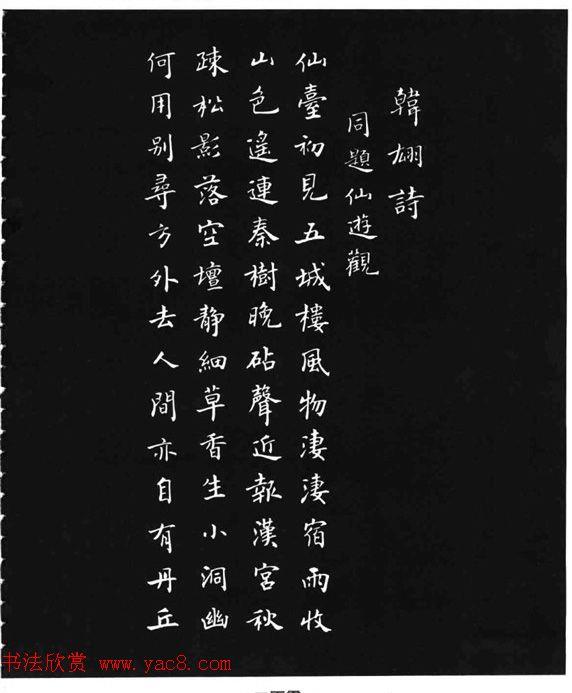 韓翃詩
同題仙遊觀
仙臺初見五城樓風物淒淒宿雨收
山色遙連秦樹晚砧聲近報漢宮秋
疎松影落空壇靜細草香生小洞幽
何用別尋方外去人間亦自有丹丘
书法欣赏 www.yac8.com